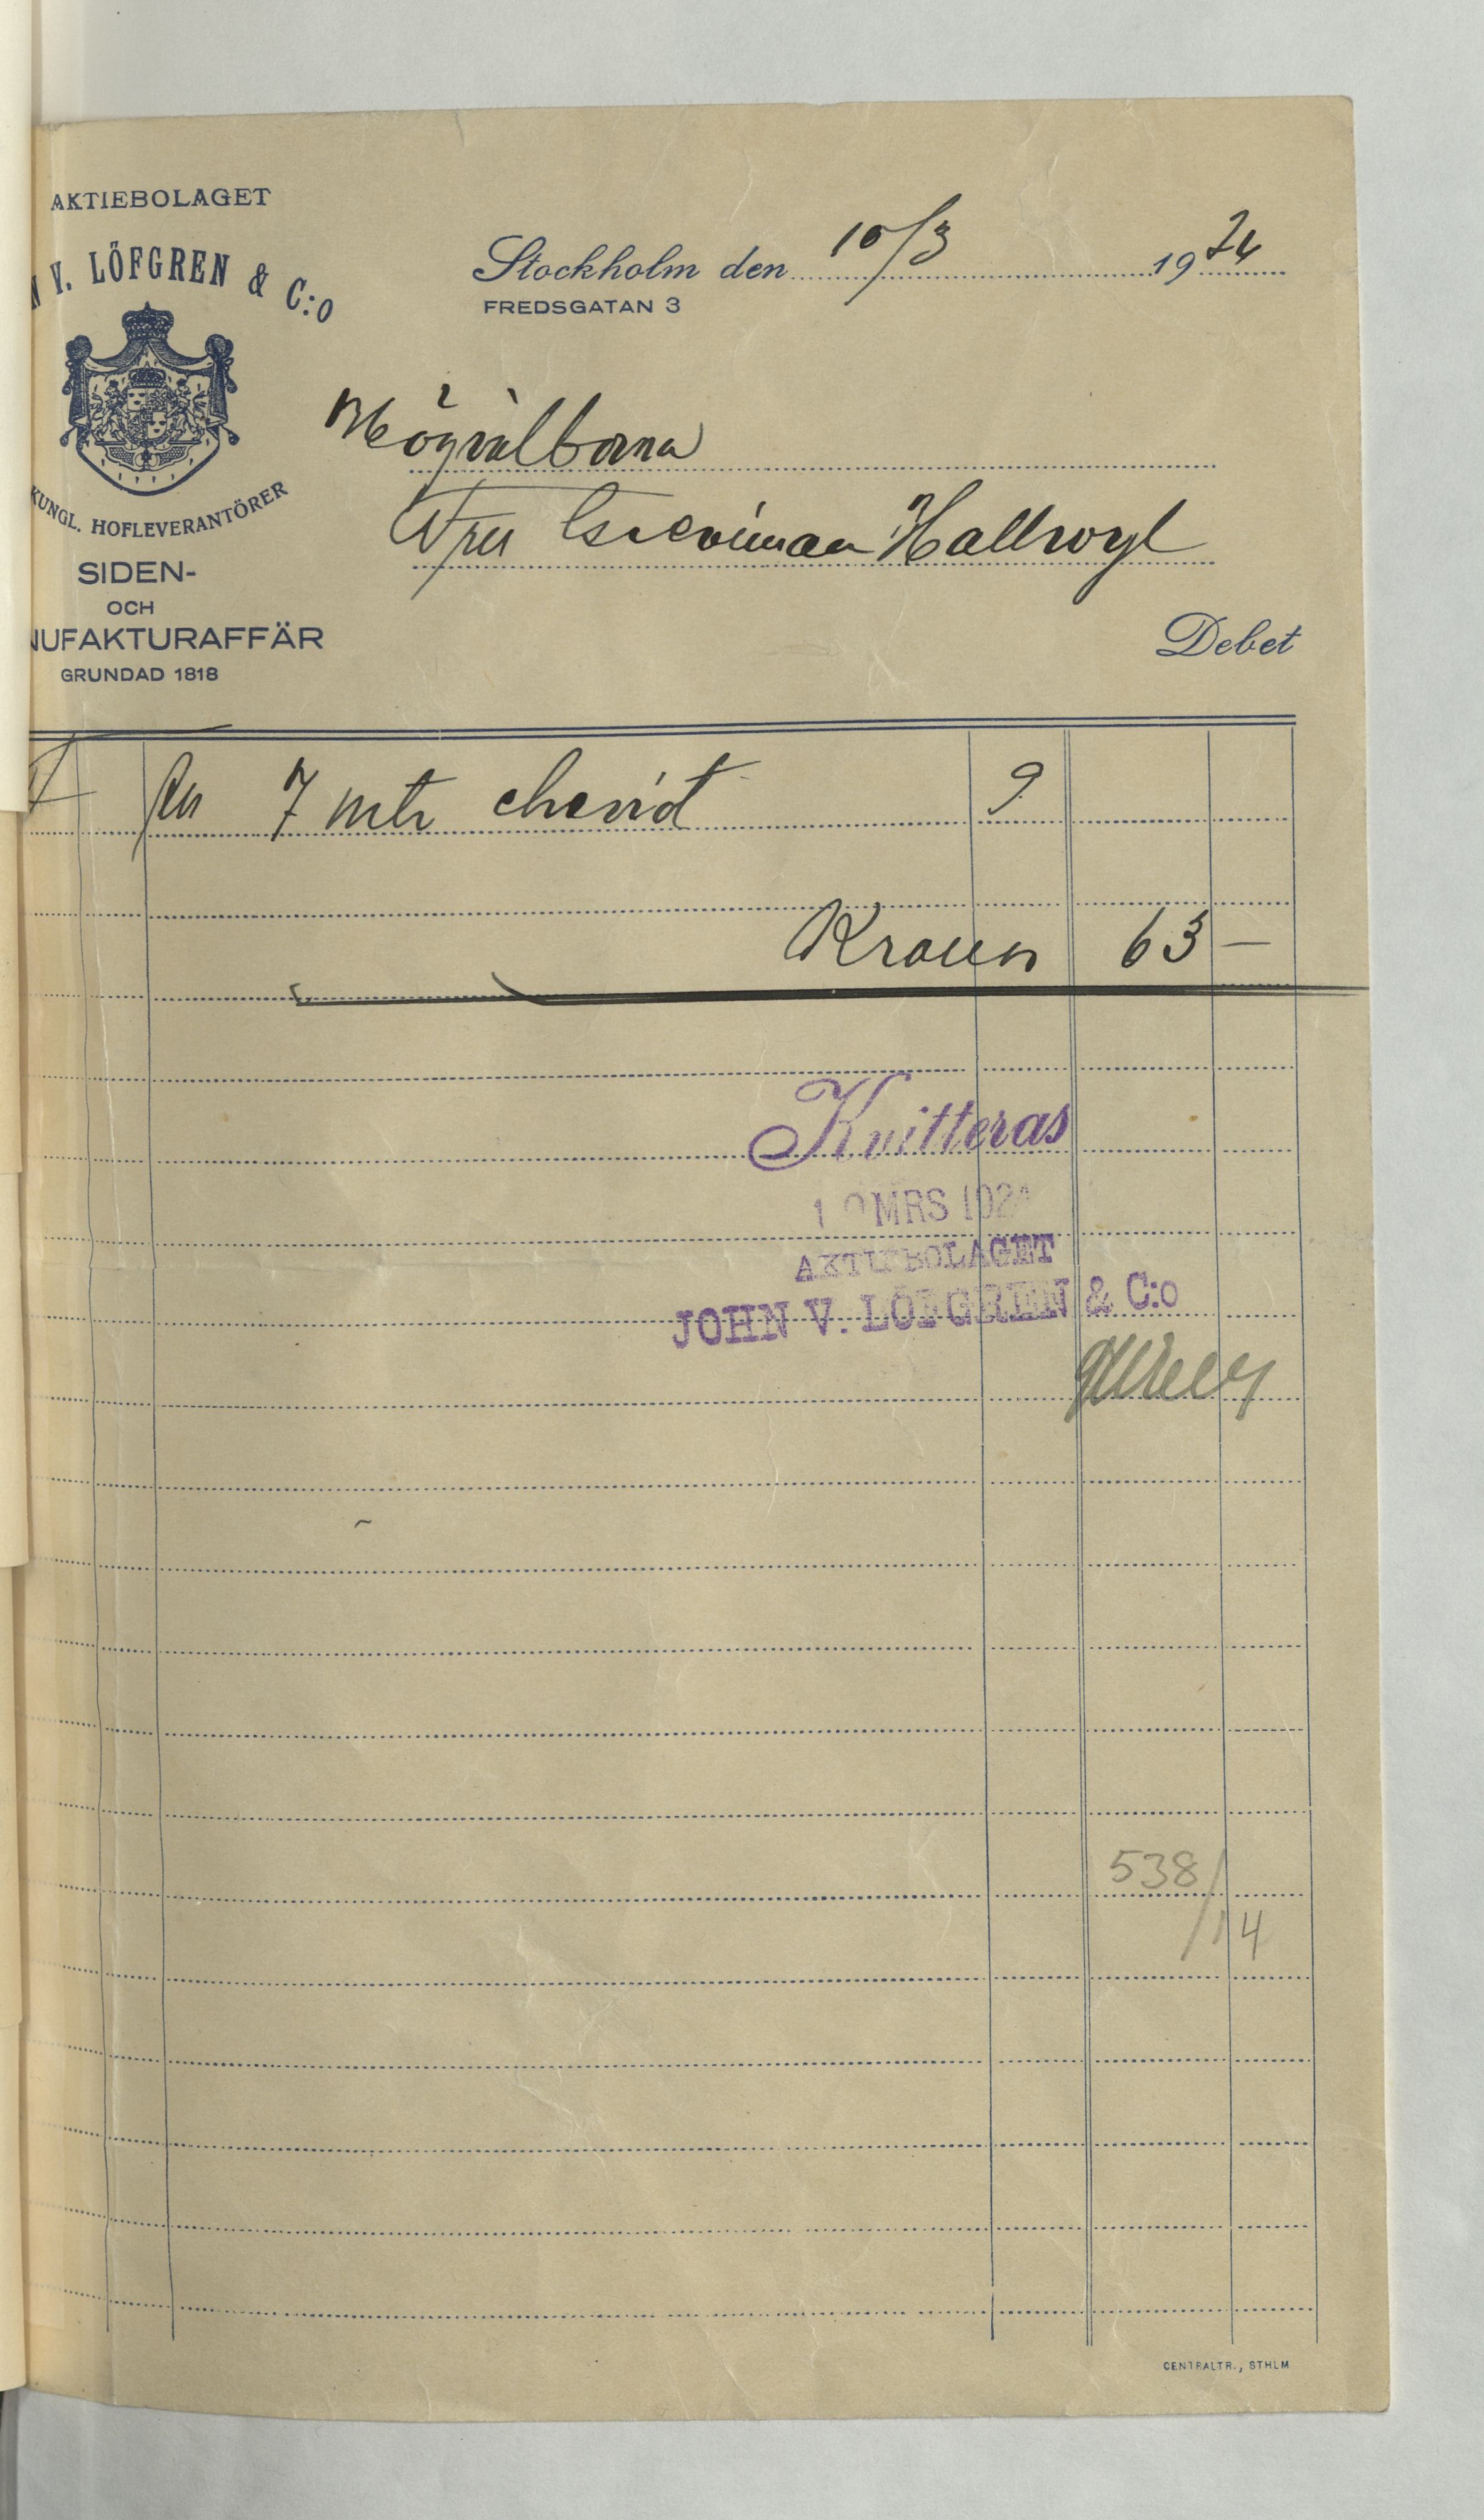 AKTIEBOLAGET
N V. LÖFGREN & C:O
KUNGL. HOFLEVERANTÖRER
SIDEN-
OCH
NUFAKTURAFFÄR
GRUNDAD 1818
Stockholm den 10/3 1924
FREDSGATAN 3
Högvälborna
Fru Grevinnan Hallwyl
Debet
7 mtr cheviot 9
Kronor 63 —
Kvitteras
10 MRS 1924
AKTIEBOLAGET
JOHN V. LÖFGREN & C:o
538/
14
CENTRALTR., STHLM